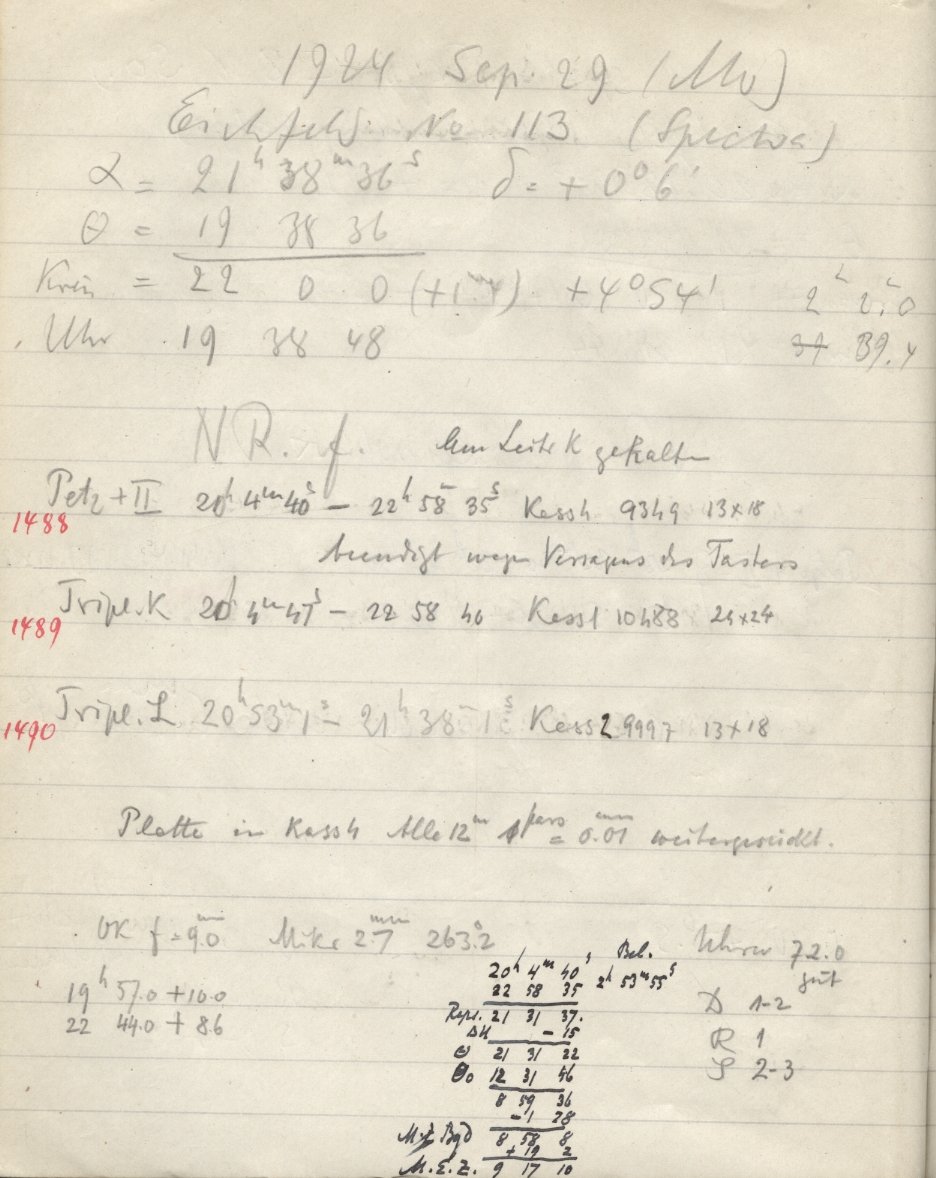 1924 Sep. 29 (Mo)
Eichfeld No 113 (Spectra)
α = 21h 38m 36s δ = + 0° 6'
θ = 19 38 36
Kreis = 22 0 0 (+1m) +4° 54'
Uhr 19 38 48 39.4
NR. f. Am Leitr K gehalten
Petz + II 20h 4m 40s – 22h 58m 35s Kass 4 9349 13×18
1488
beendigt wegen Versagens des Tasters
Tripl. K 20h 4m 47s – 22 58 40 Kass 1 10488 24×24
1489
Tripl. L 20h 53m 1s – 21h 38m 1s Kass 2 9997 13×18
1490
Platte in Kass 4 Alle 12m 1 pars = 0.01 mm weitergerückt.
OK f = 9.0 mm Mikr 2.7 mm 263.2 Uhren 72.0
gut
19h 57.0 + 10.0 D 1-2
22 44.0 + 8.6 R 1
S 2-3
20h 4m 40s Bel.
22 58 35 2h 53m 55s
21 31 37.
ΔU – 15
θ 21 31 22
θ0 12 31 46
8 59 36
– 1 28
M.Z. Bgd 8 58 8
+ 19 2
M.E.Z. 9 17 10